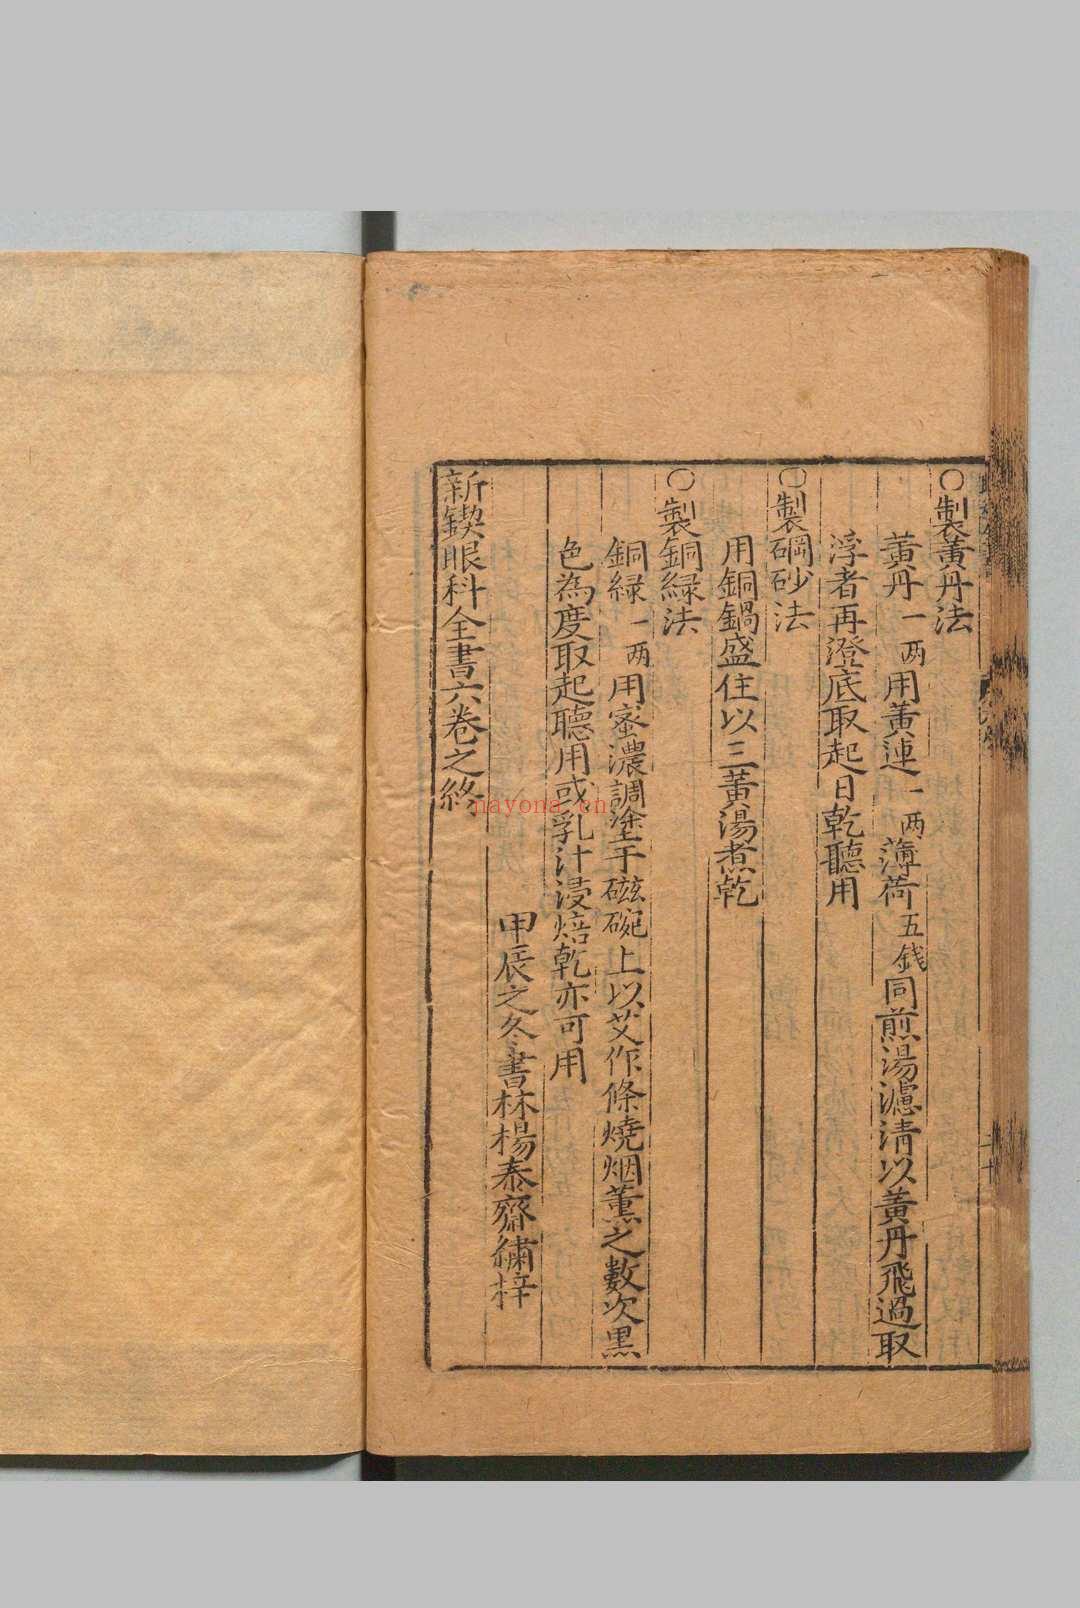 〇製黃丹法
黃丹一两用黃連一两薄荷五錢同煎湯濾清以黃丹飛過取
浮者再澄底取起日乾聽用
〇製碙砂法
用銅鍋盛住以三黃湯煮乾
〇製銅緑法
銅緑一两用蜜濃調塗于磁碗上以艾作條燒烟薰之數次黒
色為度取起聽用或乳汁浸焙乾亦可用
甲辰之冬書林楊泰齋繡梓
新鍥眼科全書六卷之終
nayona.cn